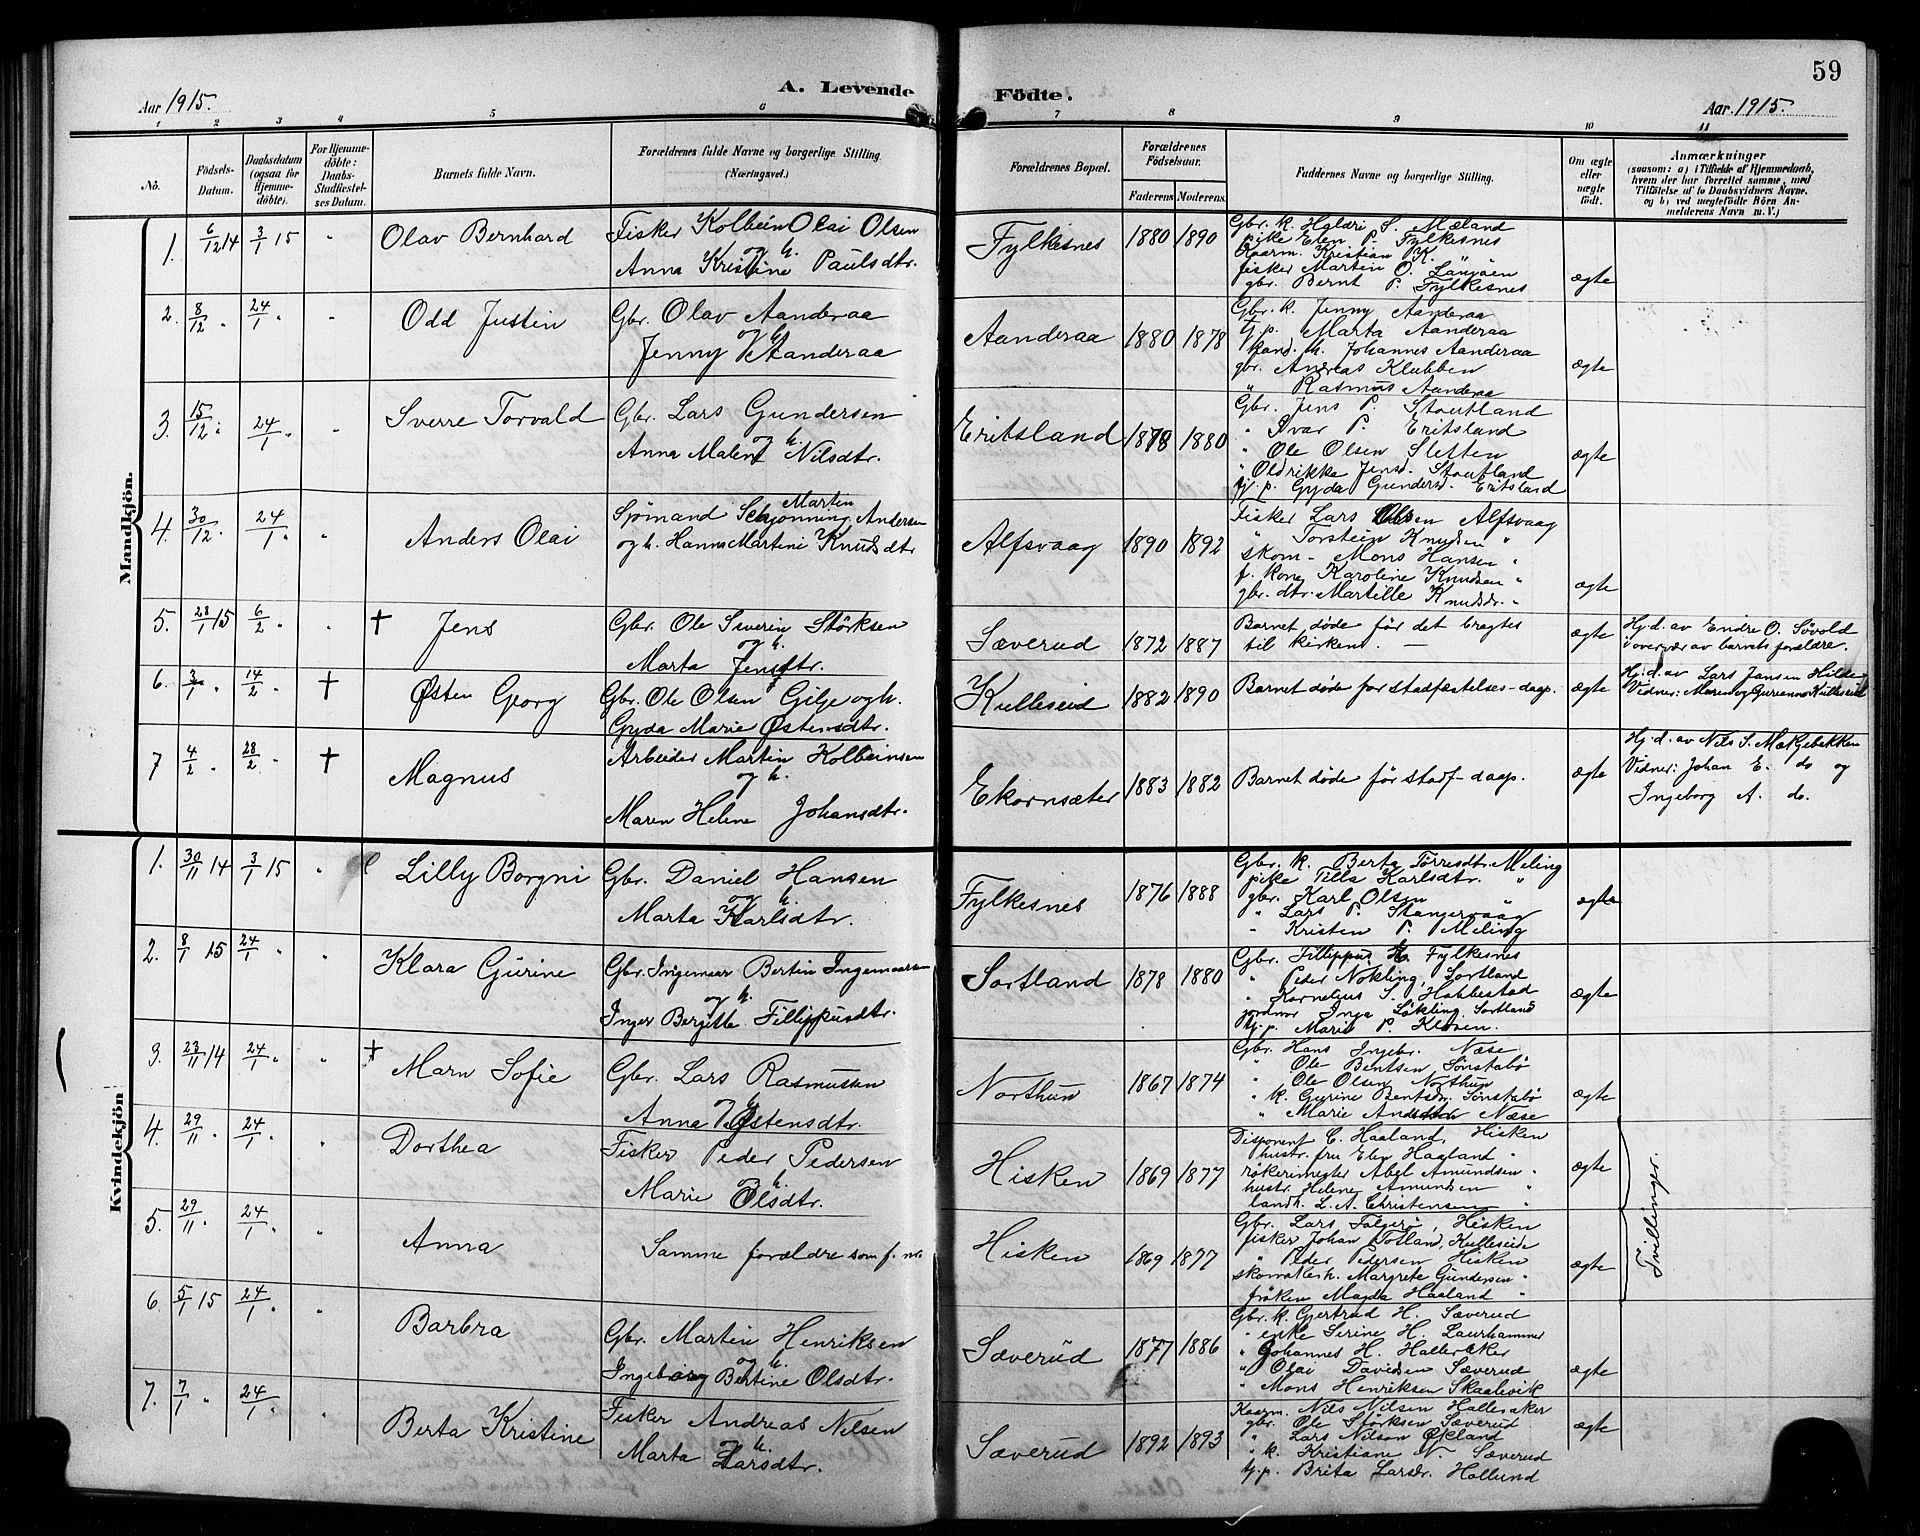 59
Aar 1915.
A. Levende Födte.
Aar 1915.
1 2 3 4 5 6 7 8 9 10 11
No.
Födsels-Datum.
Daabsdatum (ogsaa for Hjemmedöbte).
For Hjemmedöbte: Daabs-Stadfæstelses Datum.
Barnets fulde Navn.
Forældrenes fulde Navne og borgerlige Stilling. (Næringsvei.)
Forældrenes Bopæl.
Forældrenes Födselsaar.
Faderens Moderens
Faddernes Navne og borgerlige Stilling.
Om ægte eller uægte født.
Anmærkninger
(saasom: a) i Tilfælde af Hjemmedaab, hvem der har forrettet samme, med Tilföielse af to Daabsvidners Navne, og b) ved uegtefödte Börn Anmelderens Navn m. V.)
Mandkjön.
1. 6/12 14 3/1 15 " Olav Bernhard
Fisker Kolbein Olai Olsen
og h.
Anna Kristine Paulsdtr.
Fylkesnes 1880 1890
Gbr. k. Haldri S. Mæland
pike Elen P. Fylkesnes
Kaarm. Kristian P.K. "
fisker Martin O. Langöen
gbr. Bernt P. Fylkesnes
ægte
2. 8/12 " 24/1 " " Odd Justin
Gbr. Olav Aanderaa
og h.
Jenny Aanderaa
Aanderaa 1880 1878
Gbr. k. Jenny Aanderaa
tj. p. Marta Aanderaa
kand. th. Johannes Aanderaa
gbr. Andreas Klubben
" Rasmus Aanderaa
ægte
3. 15/12 " 24/1 " " Sverre Torvald
Gbr. Lars Gundersen
og h.
Anna Malene Nilsdtr.
Eritsland 1878 1880
Gbr. Jens P. Stoutland
" Ivar P. Eritsland
" Ole Olsen Sletten
" Oldrikke Jensd. Stoutland
tj. p. Gyda Gundersd. Eritsland
ægte
4. 30/12 " 24/1 " " Anders Olai
Martin
Sjömand Schjönning Andersen
og h. Hanna Martini Knudsdtr
Alfsvaag 1890 1892
Fisker Lars Olsen Alfsvaag
" Torstein Knudsen "
skom- Mons Hansen "
f. kone Karoline Knudsen "
gbr. dtr. Martille Knudsdr. "
ægte
5. 28/1 15 6/2 " " † Jens
Gbr. Ole Severin Störksen
og h.
Marta Jensdtr.
Sæverud 1872 1887
Barnet døde før det bragtes
til kirken. —
ægte
Hj. d. av Endre O. Søvold
i overvær av barnets forældre.
6. 3/1 " 14/2 " † Østen Georg
Gbr. Ole Olsen Gilje og h.
Gyda Marie Østensdtr.
Kulleseid 1882 1890
Barnet døde før stadfæstelses-daap.
ægte
Hj. d. av Lars Jansen Hilde
Vidner: Maren og Gurianna Kulleseid
7 4/2 " 28/2 " † Magnus
Arbeider Martin Kolbeinsen
og h.
Maren Helene Johansdtr.
Ekornsæter 1883 1882
Barnet døde før stadf-daap.
ægte
Hj. d. av Nils S. Mækjebakken
Vidner: Johan E. do og
Ingeborg A. do.
Kvindekjön
1. 30/11 14 3/1 15 " Lilly Borgni
Gbr. Daniel Hansen
og h.
Marta Karlsdtr.
Fylkesnes 1876 1888
Gbr. k. Berta Törresdtr. Meling
pike Tilla Karlsdtr. "
gbr. Karl Olsen "
" Lars P. Stangervaag
" Kristen P. Meling
ægte
2. 8/1 15 24/1 " " Klara Gurine
Gbr. Ingemar Bertin Ingemarsen
og h.
Inger Bergitte Fillippusdtr.
Sortland 1878 1880
Gbr. Fillippus Fylkesnes
" Peder Nökling, Sortland
" Kornelius S. Habbestad
jordmor Inga Lökling, Sortland
tj. p. Marie P. Klosen.
ægte
3. 23/11 14 24/1 " " † Marn Sofie
Gbr. Lars Rasmussen
og
Anna Østensdtr.
Northun 1867 1874
Gbr. Hans Ingebr. Næse
" Ole Bentsen Sönstabö
" Ole Olsen Northun
" k. Gurine Bentsdr. Sönstabö
" Marie Næse
ægte
4. 29/11 24/1 " " Dorthea
Fisker Peder Pedersen
h.
Marie Olsdtr.
Hisken 1869 1877
Disponent C. Haaland, Hisken
hustr. fru Elen Haaland "
rökerimester Abel Amundsen "
hustr. Helene Amundsen "
landh. L. A. Christensen "
ægte
5. 29/11 " 24/1 " " Anna
Samme forældre som f. nr.
Hisken 1869 1877
Gbr. Lars Falgerö, Hisken
fisker Johan Totland, Kulleseid
" Peder Pedersen Hisken
skomakerh. Margrete Gundersen "
fröken Magda Haaland "
ægte
Tvillinger.
6. 5/1 15 24/1 " " Barbra
Gbr. Martin Henriksen
og h.
Ingeborg Bertine Olsdtr.
Sæverud 1877 1886
Gbr. k. Gjertrud H. Sæverud
" enke Serine H. Laurhammer
" Johannes H. Halleraker
" Olai Davidsen Sæverud
" Mons Henriksen Skaalevik
ægte
7. 7/1 " 24/1 " " Berta Kristine
Fisker Andreas Nilsen
og h.
Marta Larsdtr.
Sæverud 1892 1893
Kaarm. Nils Nilsen Halleraker
gbr. Ole Störksen Sæverud
" Lars Nilson Økland
" k. Kristiane N. Sæverud
tj. p. Brita Larsdr. Hollund
ægte